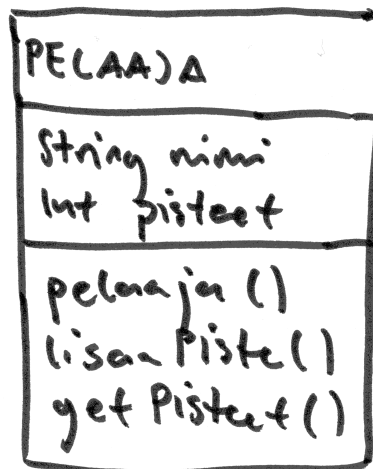 PELAAJA
String nimi
Int pisteet
pelaaja ()
lisaa Piste()
get Pisteet()